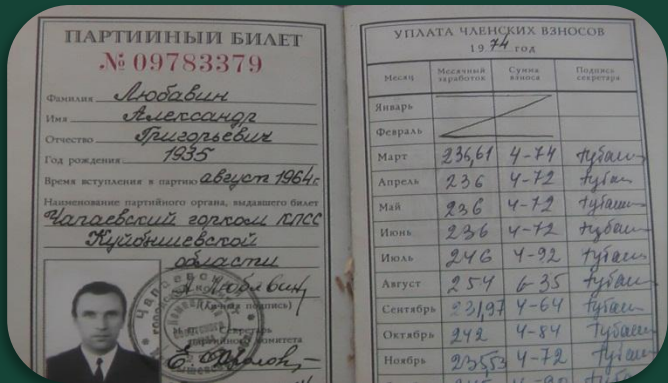 ПАРТИЙНЫЙ БИЛЕТ
№ 09783379
Фамилия Любавин
Имя Александр
Отчество Григорьевич
Год рождения 1935
Время вступления в партию август 1964 г.
Наименование партийного органа, выдавшего билет
Чапаевский горком КПСС
Куйбышевской
области
(Личная подпись)
УПЛАТА ЧЛЕНСКИХ ВЗНОСОВ
1974 год
Месяц Месячный заработок Сумма взноса Подпись секретаря
Январь
Февраль
Март 236,61 4-74
Апрель 236 4-72
Май 236 4-72
Июнь 236 4-72
Июль 246 4-92
Август 254 6-35
Сентябрь 231,97 4-64
Октябрь 242 4-84
Ноябрь 235,53 4-72